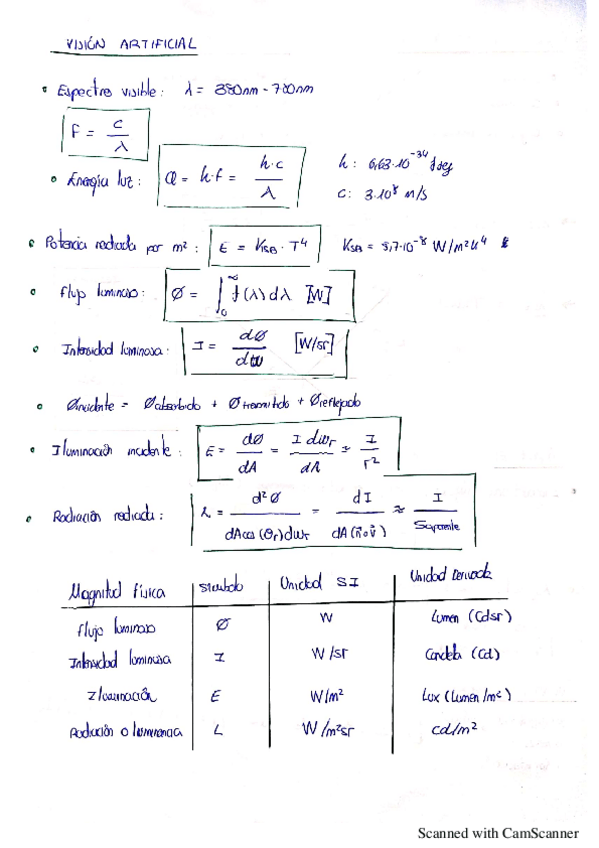 VISIÓN ARTIFICIAL
• Espectro visible: λ = 380nm - 780nm
F = c / λ
• Energía luz: Q = h·f = h·c / λ
h: 6,63·10^-34 J seg
c: 3·10^8 m/s
• Potencia radiada por m²: E = K_SB · T⁴ K_SB = 5,7·10^-8 W/m²K⁴
• Flujo luminoso: Ø = ∫₀^∞ f(λ)dλ [W]
• Intensidad luminosa: I = dØ / dω [W/sr]
• Øincidente = Øabsorbido + Øtransmitido + Øreflejado
• Iluminación incidente: E = dØ / dA = I dωr / dA = I / r²
• Radiación radiada: L = d²Ø / dA cos(θr)dωr = dI / dA(n̄ o v̄) ≈ I / Saparente
Magnitud física Símbolo Unidad SI Unidad Derivada
Flujo luminoso Ø W Lumen (Cdsr)
Intensidad luminosa I W/sr Candela (Cd)
Iluminación E W/m² Lux (Lumen/m²)
Radiación o luminancia L W/m²sr cd/m²
Scanned with CamScanner